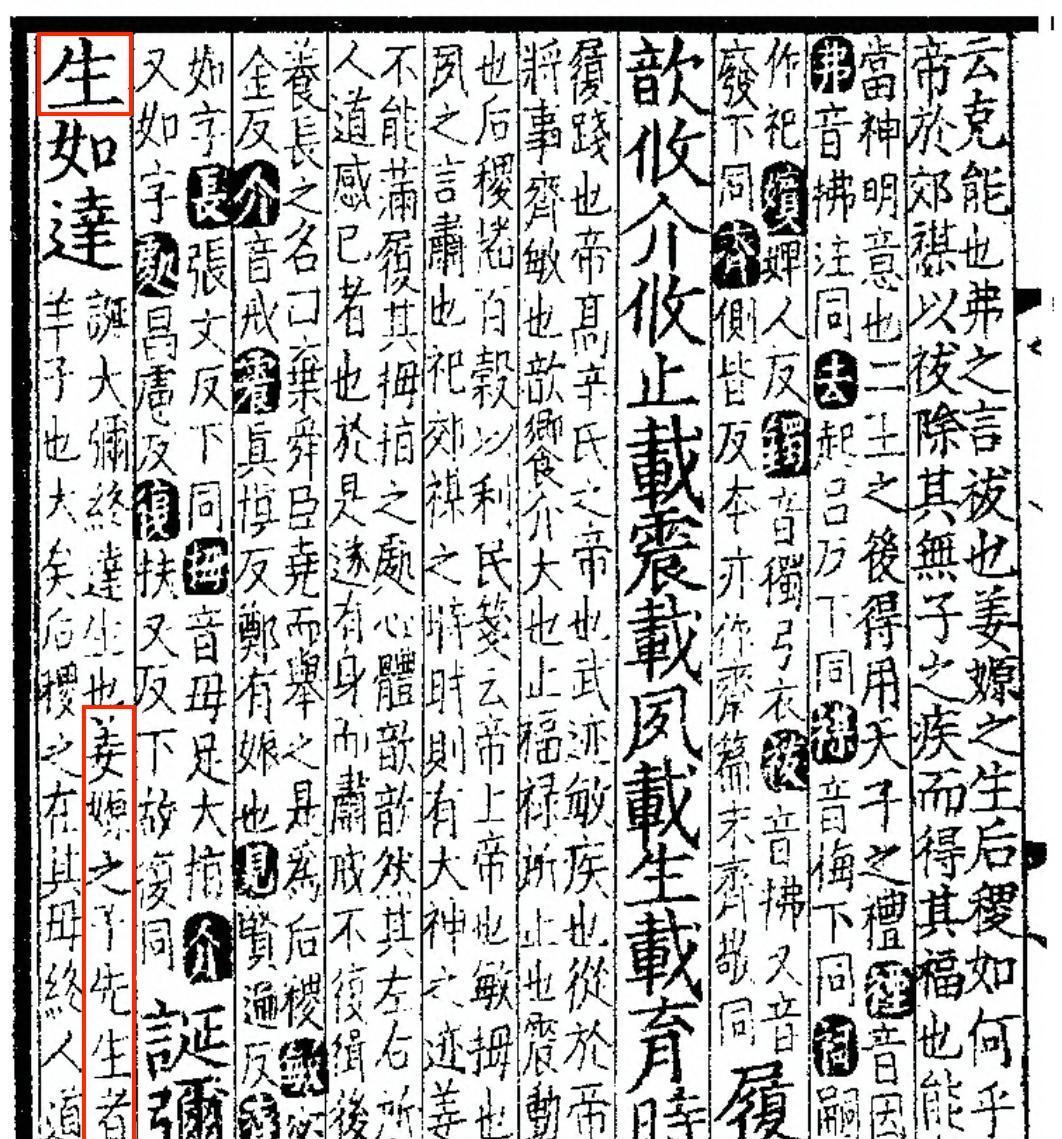 云克能也弗之言祓也姜嫄之生后稷如何乎
帝於郊禖以祓除其無子之疾而得其福也能
當神明意也二王之後得用天子之禮禋音因
弗音拂注同去起呂反下同禖音梅下同祠嗣
作祀嬪婢人反韣音獨弓衣祓音拂又音
廢下同齊側皆反本亦作齋篇末齊敬同
履
歆攸介攸止載震載夙載生載育時
履踐也帝高辛氏之帝也武迹敏疾也從於帝
將事齊敏也歆饗介大也止福祿所止也震動
也后稷播百穀以利民箋云帝上帝也敏拇也
夙之言肅也祀郊禖之時時則有大神之迹姜
不能滿履其拇指之處心體歆歆然其左右所
人道感己者也於是遂有身而肅戒不復御後
養長之名曰棄舜臣堯而舉之是為后稷敏密
金反介音戒震真慎反鄭有娠也見賢遍反
如字長張丈反下同拇音母足大指介
又如字處昌慮反復扶又反下放復同
誕彌
生如達
誕大彌終達生也姜嫄之子先生者
羊子也大矣后稷之在其母終人道